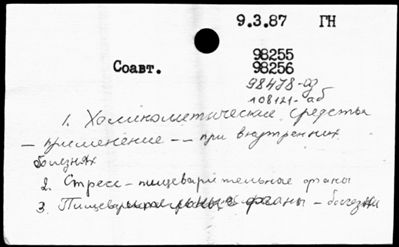 9.3.87 ГН
98255
Соавт. 98256
98478-од
108121-аб
1. Холинолитические средства
— применение -- при внутренних
болезнях
2. Стресс - пищеварительные органы
3. Пищеварительные органы - болезни